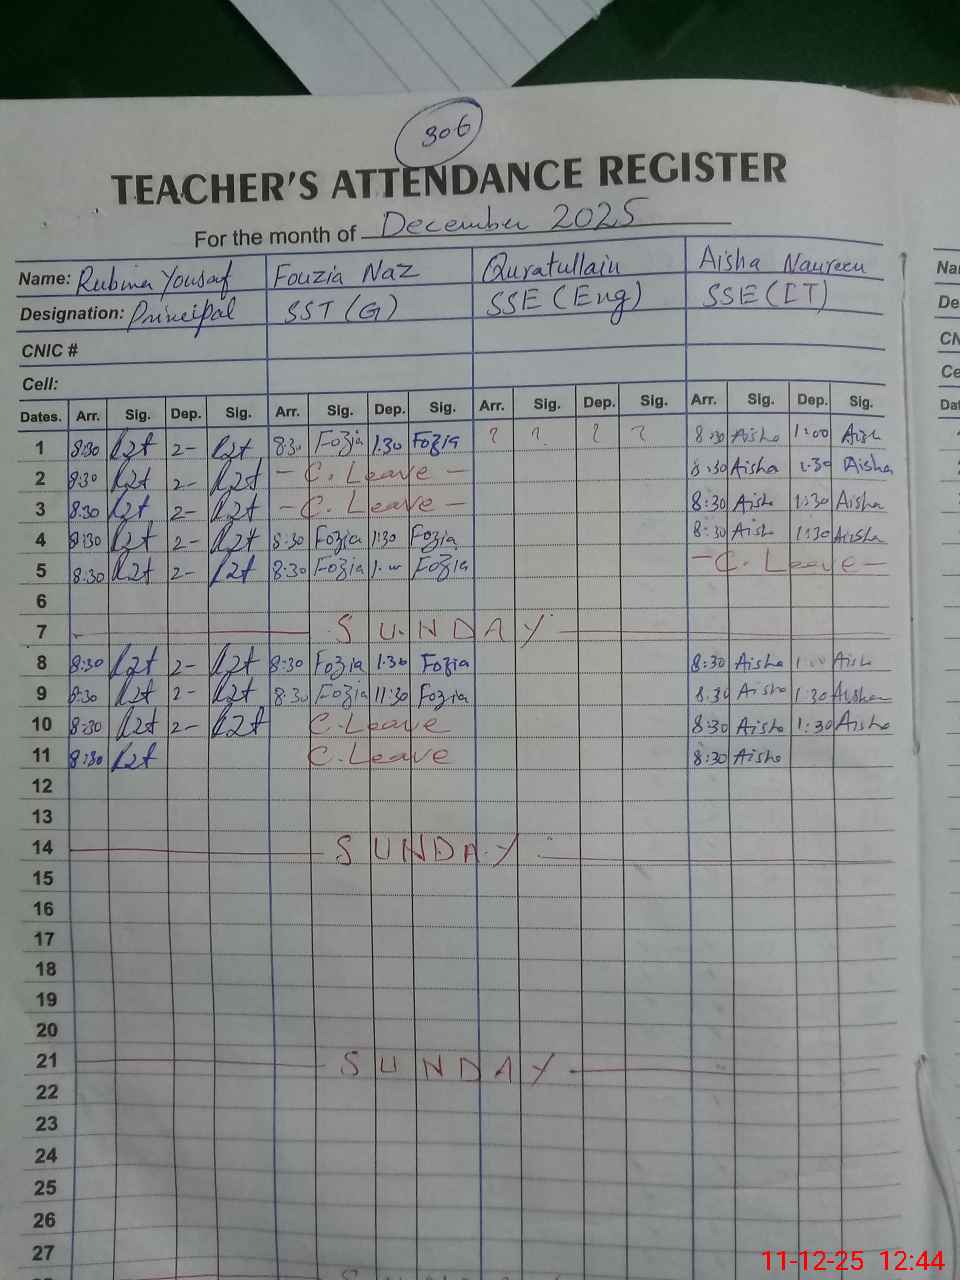 306
TEACHER'S ATTENDANCE REGISTER
For the month of December 2025
Name: Rubina Yousaf Fouzia Naz Quratullain Aisha Naureen
Designation: Principal SST (G) SSE (Eng) SSE (IT)
CNIC #
Cell:
Dates. Arr. Sig. Dep. Sig. Arr. Sig. Dep. Sig. Arr. Sig. Dep. Sig. Arr. Sig. Dep. Sig.
1 8:30 2- 8:30 Fozia 1:30 Fozia ? ? ? ? 8:30 Aisha 1:00 Aish
2 8:30 2- - C. Leave - 8:30 Aisha 1:30 Aisha
3 8:30 2- - C. Leave - 8:30 Aisha 1:30 Aisha
4 8:30 2- 8:30 Fozia 1:30 Fozia 8:30 Aisha 1:30 Aisha
5 8:30 2- 8:30 Fozia Fozia - C. Leave -
6
7 SUNDAY
8 8:30 2- 8:30 Fozia 1:30 Fozia 8:30 Aisha Aish
9 8:30 2- 8:30 Fozia 11:30 Fozia 8:30 Aisha 1:30 Aisha
10 8:30 2- C. Leave 8:30 Aisha 1:30 Aisha
11 8:30 C. Leave 8:30 Aisha
12
13
14 SUNDAY
15
16
17
18
19
20
21 SUNDAY
22
23
24
25
26
27
11-12-25 12:44